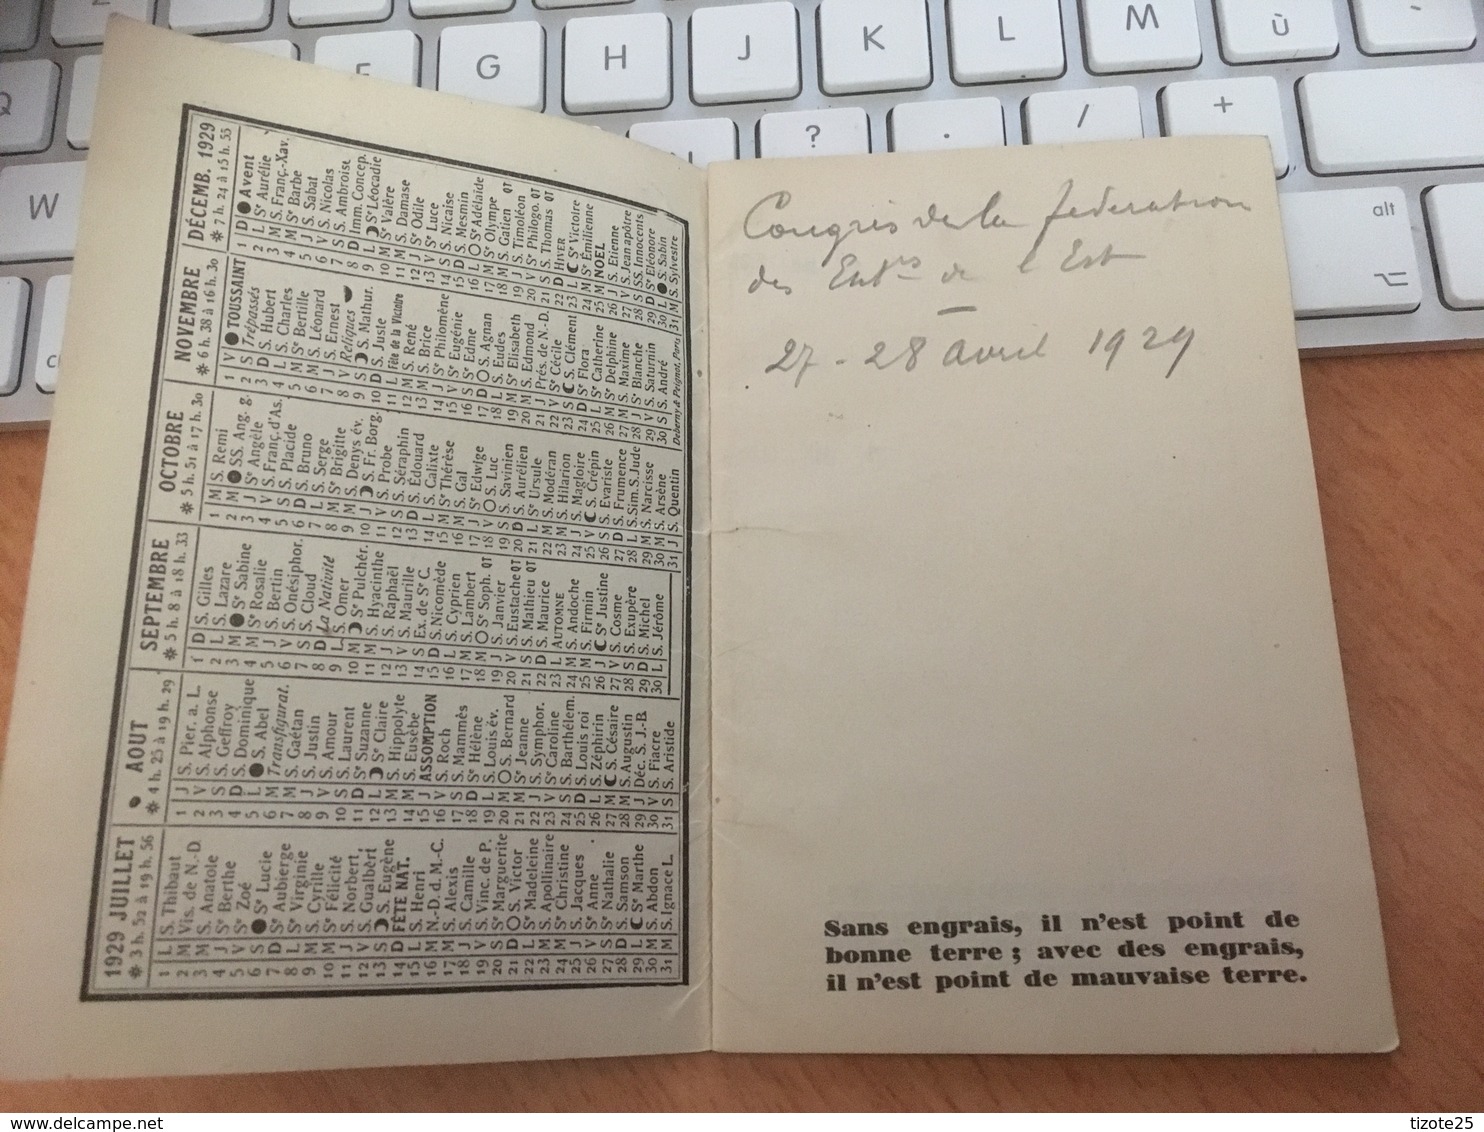 1929 JUILLET
☀ 3 h. 52 à 19 h. 56
1 L S. Thibaut
2 M Vis. de N.-D.
3 M S. Anatole
4 J Sᵉ Berthe
5 V Sᵉ Zoé
6 S ● Sᵉ Lucie
7 D Sᵉ Aubierge
8 L Sᵉ Virginie
9 M S. Cyrille
10 M Sᵉ Félicité
11 J S. Norbert
12 V S. Gualbert
13 S ☽ S. Eugène
14 D FÊTE NAT.
15 L S. Henri
16 M N.-D. d. M.-C.
17 M S. Alexis
18 J S. Camille
19 V S. Vinc. de P.
20 S Sᵉ Marguerite
21 D ○ S. Victor
22 L Sᵉ Madeleine
23 M S. Apollinaire
24 M Sᵉ Christine
25 J S. Jacques
26 V Sᵉ Anne
27 S Sᵉ Nathalie
28 D S. Samson
29 L ☾ Sᵉ Marthe
30 M S. Abdon
31 M S. Ignace L.
AOUT
☀ 4 h. 25 à 19 h. 29
1 J S. Pier. a. L.
2 V S. Alphonse
3 S S. Geffroy
4 D S. Dominique
5 L ● S. Abel
6 M Transfigurat.
7 M S. Gaétan
8 J S. Justin
9 V S. Amour
10 S S. Laurent
11 D Sᵉ Suzanne
12 L ☽ Sᵉ Claire
13 M S. Hippolyte
14 M S. Eusèbe
15 J ASSOMPTION
16 V S. Roch
17 S S. Mammès
18 D Sᵉ Hélène
19 L S. Louis év.
20 M ○ S. Bernard
21 M Sᵉ Jeanne
22 J S. Symphor.
23 V Sᵉ Caroline
24 S S. Barthélem.
25 D S. Louis roi
26 L S. Zéphirin
27 M ☾ S. Césaire
28 M S. Augustin
29 J Déc. S. J.-B.
30 V S. Fiacre
31 S S. Aristide
SEPTEMBRE
☀ 5 h. 8 à 18 h. 33
1 D S. Gilles
2 L S. Lazare
3 M ● Sᵉ Sabine
4 M Sᵉ Rosalie
5 J S. Bertin
6 V S. Onésiphor.
7 S S. Cloud
8 D La Nativité
9 L S. Omer
10 M ☽ Sᵉ Pulchér.
11 M S. Hyacinthe
12 J S. Raphaël
13 V S. Maurille
14 S Ex. de Sᵉ C.
15 D S. Nicomède
16 L S. Cyprien
17 M S. Lambert
18 M ○ Sᵉ Soph. QT
19 J S. Janvier
20 V S. Eustache QT
21 S S. Mathieu QT
22 D S. Maurice
23 L AUTOMNE
24 M S. Andoche
25 M S. Firmin
26 J ☾ Sᵉ Justine
27 V S. Cosme
28 S S. Exupère
29 D S. Michel
30 L S. Jérôme
OCTOBRE
☀ 5 h. 51 à 17 h. 30
1 M S. Remi
2 M ● SS. Ang. g.
3 J Sᵉ Angèle
4 V S. Franç. d'As.
5 S S. Placide
6 D S. Bruno
7 L S. Serge
8 M Sᵉ Brigitte
9 M S. Denys év.
10 J ☽ S. Fr. Borg.
11 V S. Probe
12 S S. Séraphin
13 D S. Édouard
14 L S. Calixte
15 M Sᵉ Thérèse
16 M S. Gal
17 J Sᵉ Edwige
18 V ○ S. Luc
19 S S. Savinien
20 D S. Aurélien
21 L Sᵉ Ursule
22 M S. Modéran
23 M S. Hilarion
24 J S. Magloire
25 V ☾ S. Crépin
26 S S. Evariste
27 D S. Frumence
28 L S. Sim. S. Jude
29 M S. Narcisse
30 M S. Arsène
31 J S. Quentin
NOVEMBRE
☀ 6 h. 38 à 16 h. 30
1 V ● TOUSSAINT
2 S Trépassés
3 D S. Hubert
4 L S. Charles
5 M Sᵉ Bertille
6 M S. Léonard
7 J S. Ernest
8 V Reliques
9 S ☽ S. Mathur.
10 D S. Juste
11 L Fête de la Victoire
12 M S. René
13 M S. Brice
14 J Sᵉ Philomène
15 V Sᵉ Eugénie
16 S S. Edme
17 D ○ S. Agnan
18 L S. Eudes
19 M Sᵉ Elisabeth
20 M S. Edmond
21 J Prés. de N.-D.
22 V Sᵉ Cécile
23 S ☾ S. Clément
24 D Sᵉ Flora
25 L Sᵉ Catherine
26 M Sᵉ Delphine
27 M S. Maxime
28 J Sᵉ Blanche
29 V S. Saturnin
30 S S. André
Deberny & Peignot, Paris
DÉCEMB. 1929
☀ 7 h. 24 à 15 h. 55
1 D ● Avent
2 L Sᵉ Aurélie
3 M S. Franç.-Xav.
4 M Sᵉ Barbe
5 J S. Sabat
6 V S. Nicolas
7 S S. Ambroise
8 D Imm. Concep.
9 L ☽ Sᵉ Léocadie
10 M Sᵉ Valère
11 M S. Damase
12 J Sᵉ Odile
13 V Sᵉ Luce
14 S S. Nicaise
15 D S. Mesmin
16 L ○ Sᵉ Adélaïde
17 M Sᵉ Olympe
18 M S. Gatien QT
19 J S. Timoléon
20 V Sᵉ Philogo. QT
21 S S. Thomas QT
22 D HIVER
23 L ☾ Sᵉ Victoire
24 M Sᵉ Émilienne
25 M NOEL
26 J S. Etienne
27 V S. Jean apôtre
28 S SS. Innocents
29 D Sᵉ Eléonore
30 L ● S. Sabin
31 M S. Sylvestre
Congrès de la federation
des Entrs de l'Est
—
27 - 28 avril 1929
Sans engrais, il n'est point de
bonne terre ; avec des engrais,
il n'est point de mauvaise terre.
G H J K L M ù
Q
? . / +
W
alt
tizote25